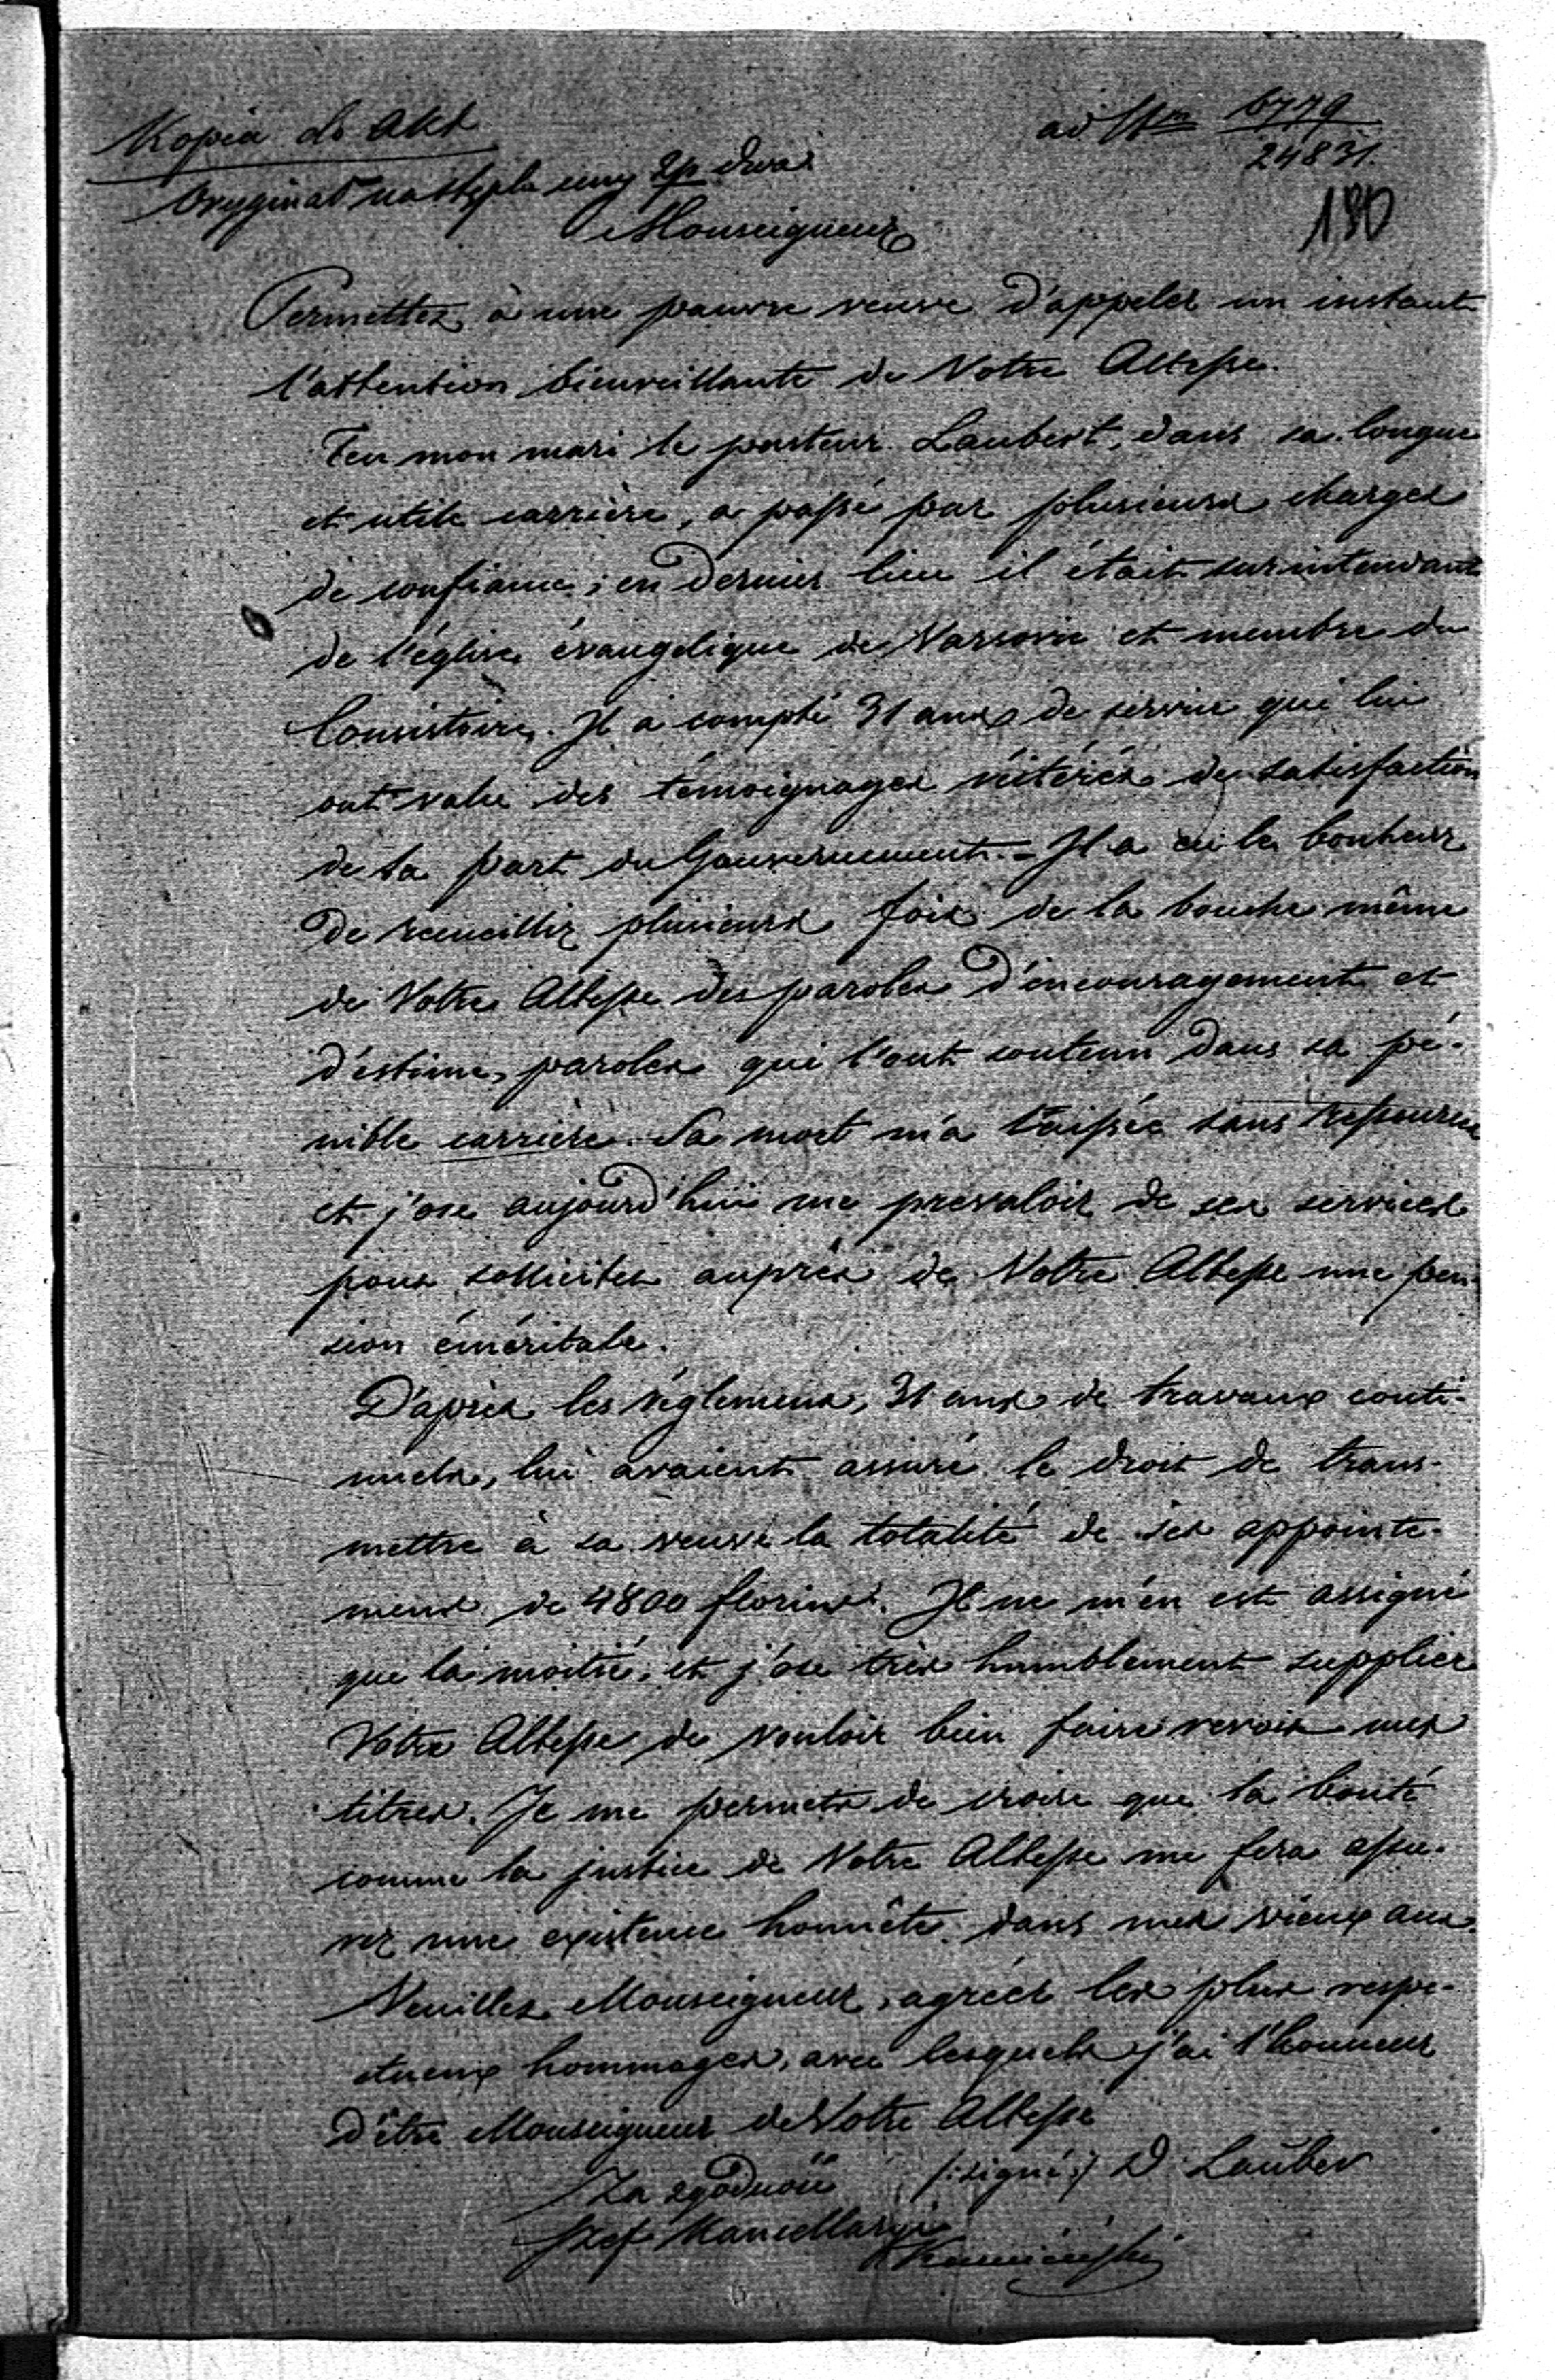 Kopia do Akt
ad Nm 6779
24831
Oryginał
130
Monseigneur
Permettez à une pauvre veuve d'appeler un instant
l'attention bienveillante de Votre Altesse.
Feu mon mari le pasteur Laubert, dans sa longue
et utile carrière, a passé par plusieurs charges
de confiance; en dernier lieu il était surintendant
de l'église évangelique de Varsovie et membre du
Consistoire. Il a compté 31 ans de service qui lui
ont valu des témoignages réitérés de satisfaction
de la part du Gouvernement. - Il a eu le bonheur
de recueillir plusieurs fois de la bouche même
de Votre Altesse des paroles d'encouragement et
d'éstime, paroles qui l'ont soutenu dans sa pé-
nible carrière. Sa mort m'a laissée sans ressource
et j'ose aujourd'hui me prevaloir de ses services
pour solliciter auprès de Votre Altesse une pen-
sion éméritale.
D'après les réglemens, 31 ans de travaux conti-
nuels, lui avaient assuré le droit de trans-
mettre à sa veuve la totalité de ses appointe-
mens de 4800 florins. Il ne m'en est assigné
que la moitié, et j'ose très humblement supplier
Votre Altesse de vouloir bien faire revoir mes
titres. Je me permets de croire que la bonté
comme la justice de Votre Altesse me fera assu-
rer une existence honnête dans mes vieux ans.
Veuillez Monseigneur, agréer les plus respe-
ctueux hommages, avec lesquels j'ai l'honneur
d'être Monseigneur de Votre Altesse
/:signé:/ D. Lauber
Za zgodność
Szef Kancellaryi